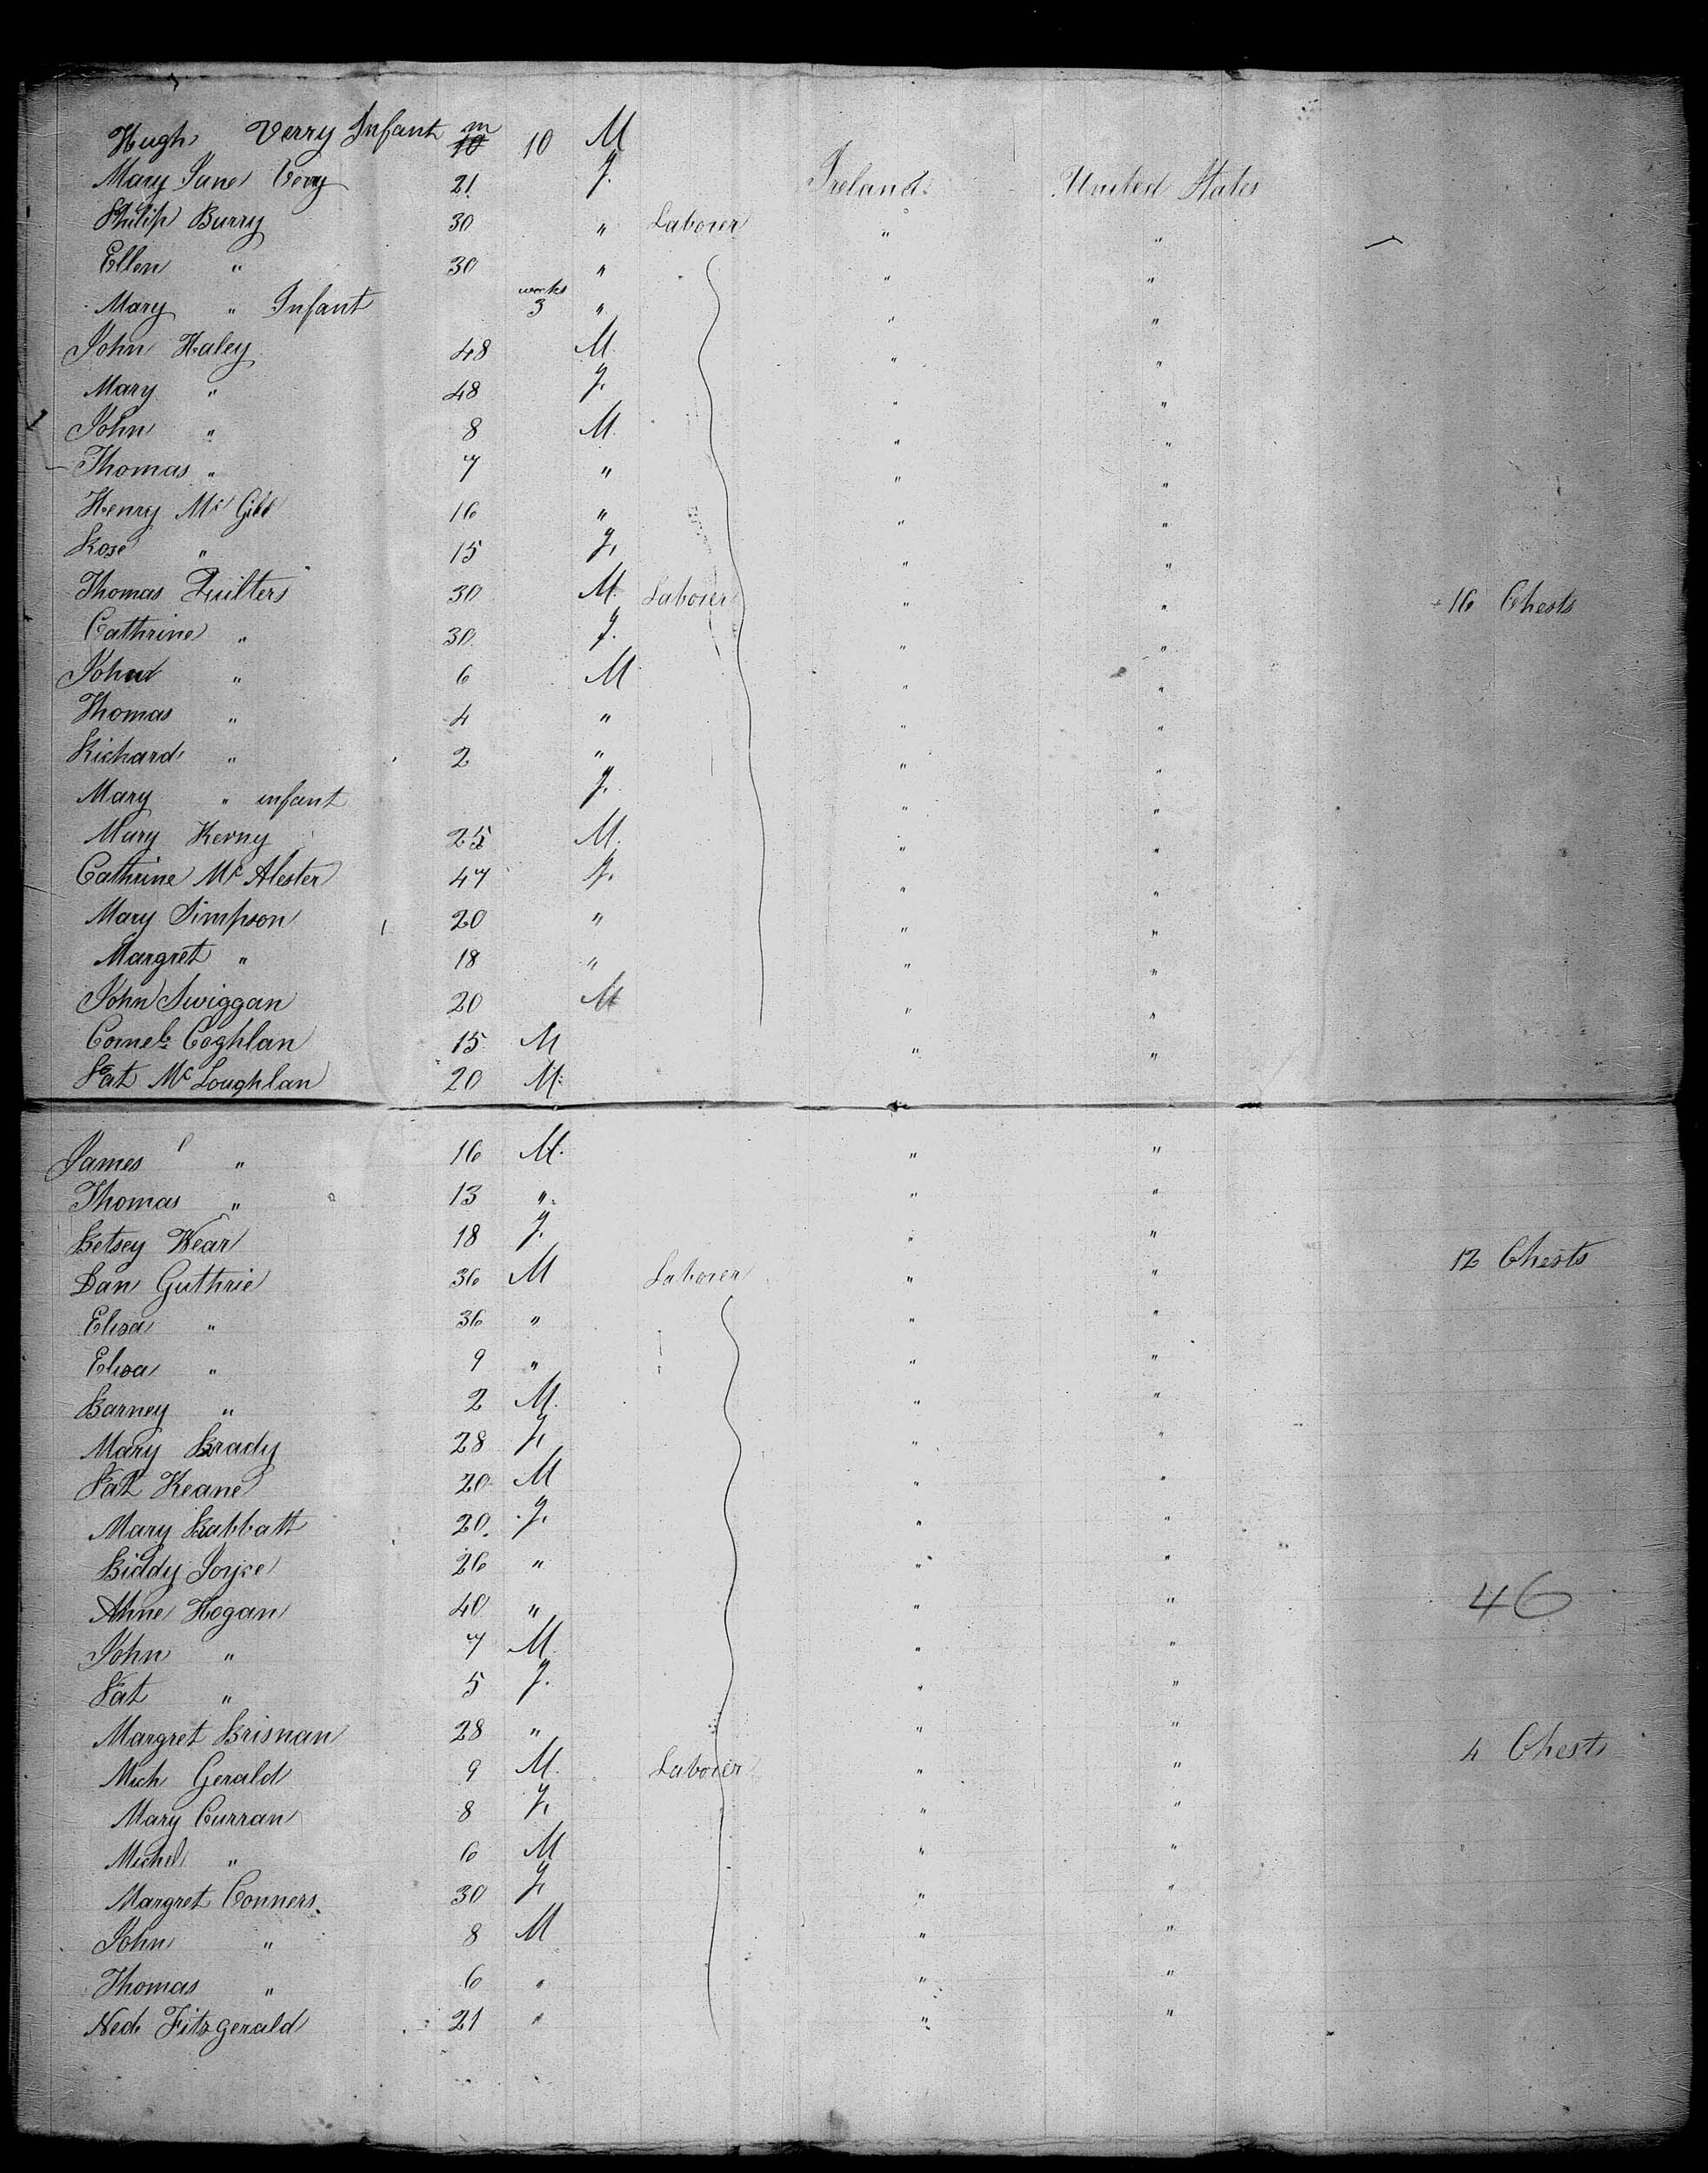 Hugh Verry Infant m 10 10 M
Mary Jane Verry 21 F. Ireland United States
Philip Burry 30 " Laborer " "
Ellen " 30 " " "
Mary " Infant weeks 3 " " "
John Haley 48 M " "
Mary " 48 F. " "
John " 8 M " "
Thomas " 7 " " "
Henry Mc Gill 16 " " "
Rose " 15 F. " "
Thomas Quilters 30 M Laborer " " 16 Chests
Cathrine " 30 F. " "
John " 6 M " "
Thomas " 4 " " "
Richard " 2 " " "
Mary " infant F. " "
Mary Kerny 25 M. " "
Cathrine Mc Alester 47 F. " "
Mary Simpson 20 " " "
Margret " 18 " " "
John Swiggan 20 M " "
Cornels Coghlan 15 M " "
Pat Mc Loughlan 20 M.
James " 16 M. " "
Thomas " 13 " " "
Betsey Wear 18 F. " "
Dan Guthrie 36 M Laborer " " 12 Chests
Elisa " 36 " " "
Elisa " 9 " " "
Barney " 2 M. " "
Mary Brady 28 F. " "
Pat Keane 20 M " "
Mary Babbatt 20 F. " "
Biddy Joyce 26 " " "
Anne Hogan 40 " " " 46
John " 7 M " "
Pat " 5 F. " "
Margret Brisnan 28 " " "
Mich Gerald 9 M. Laborer " " 4 Chests
Mary Curran 8 F. " "
Michel " 6 M " "
Margret Conners. 30 F. " "
John " 8 M " "
Thomas " 6 " " "
Ned Fitzgerald 21 " " "